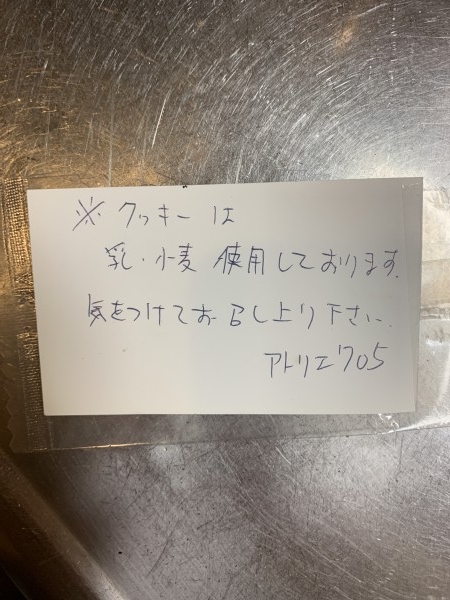 ※クッキーは
乳・小麦 使用しております.
気をつけてお召し上り下さい.
アトリエ'705